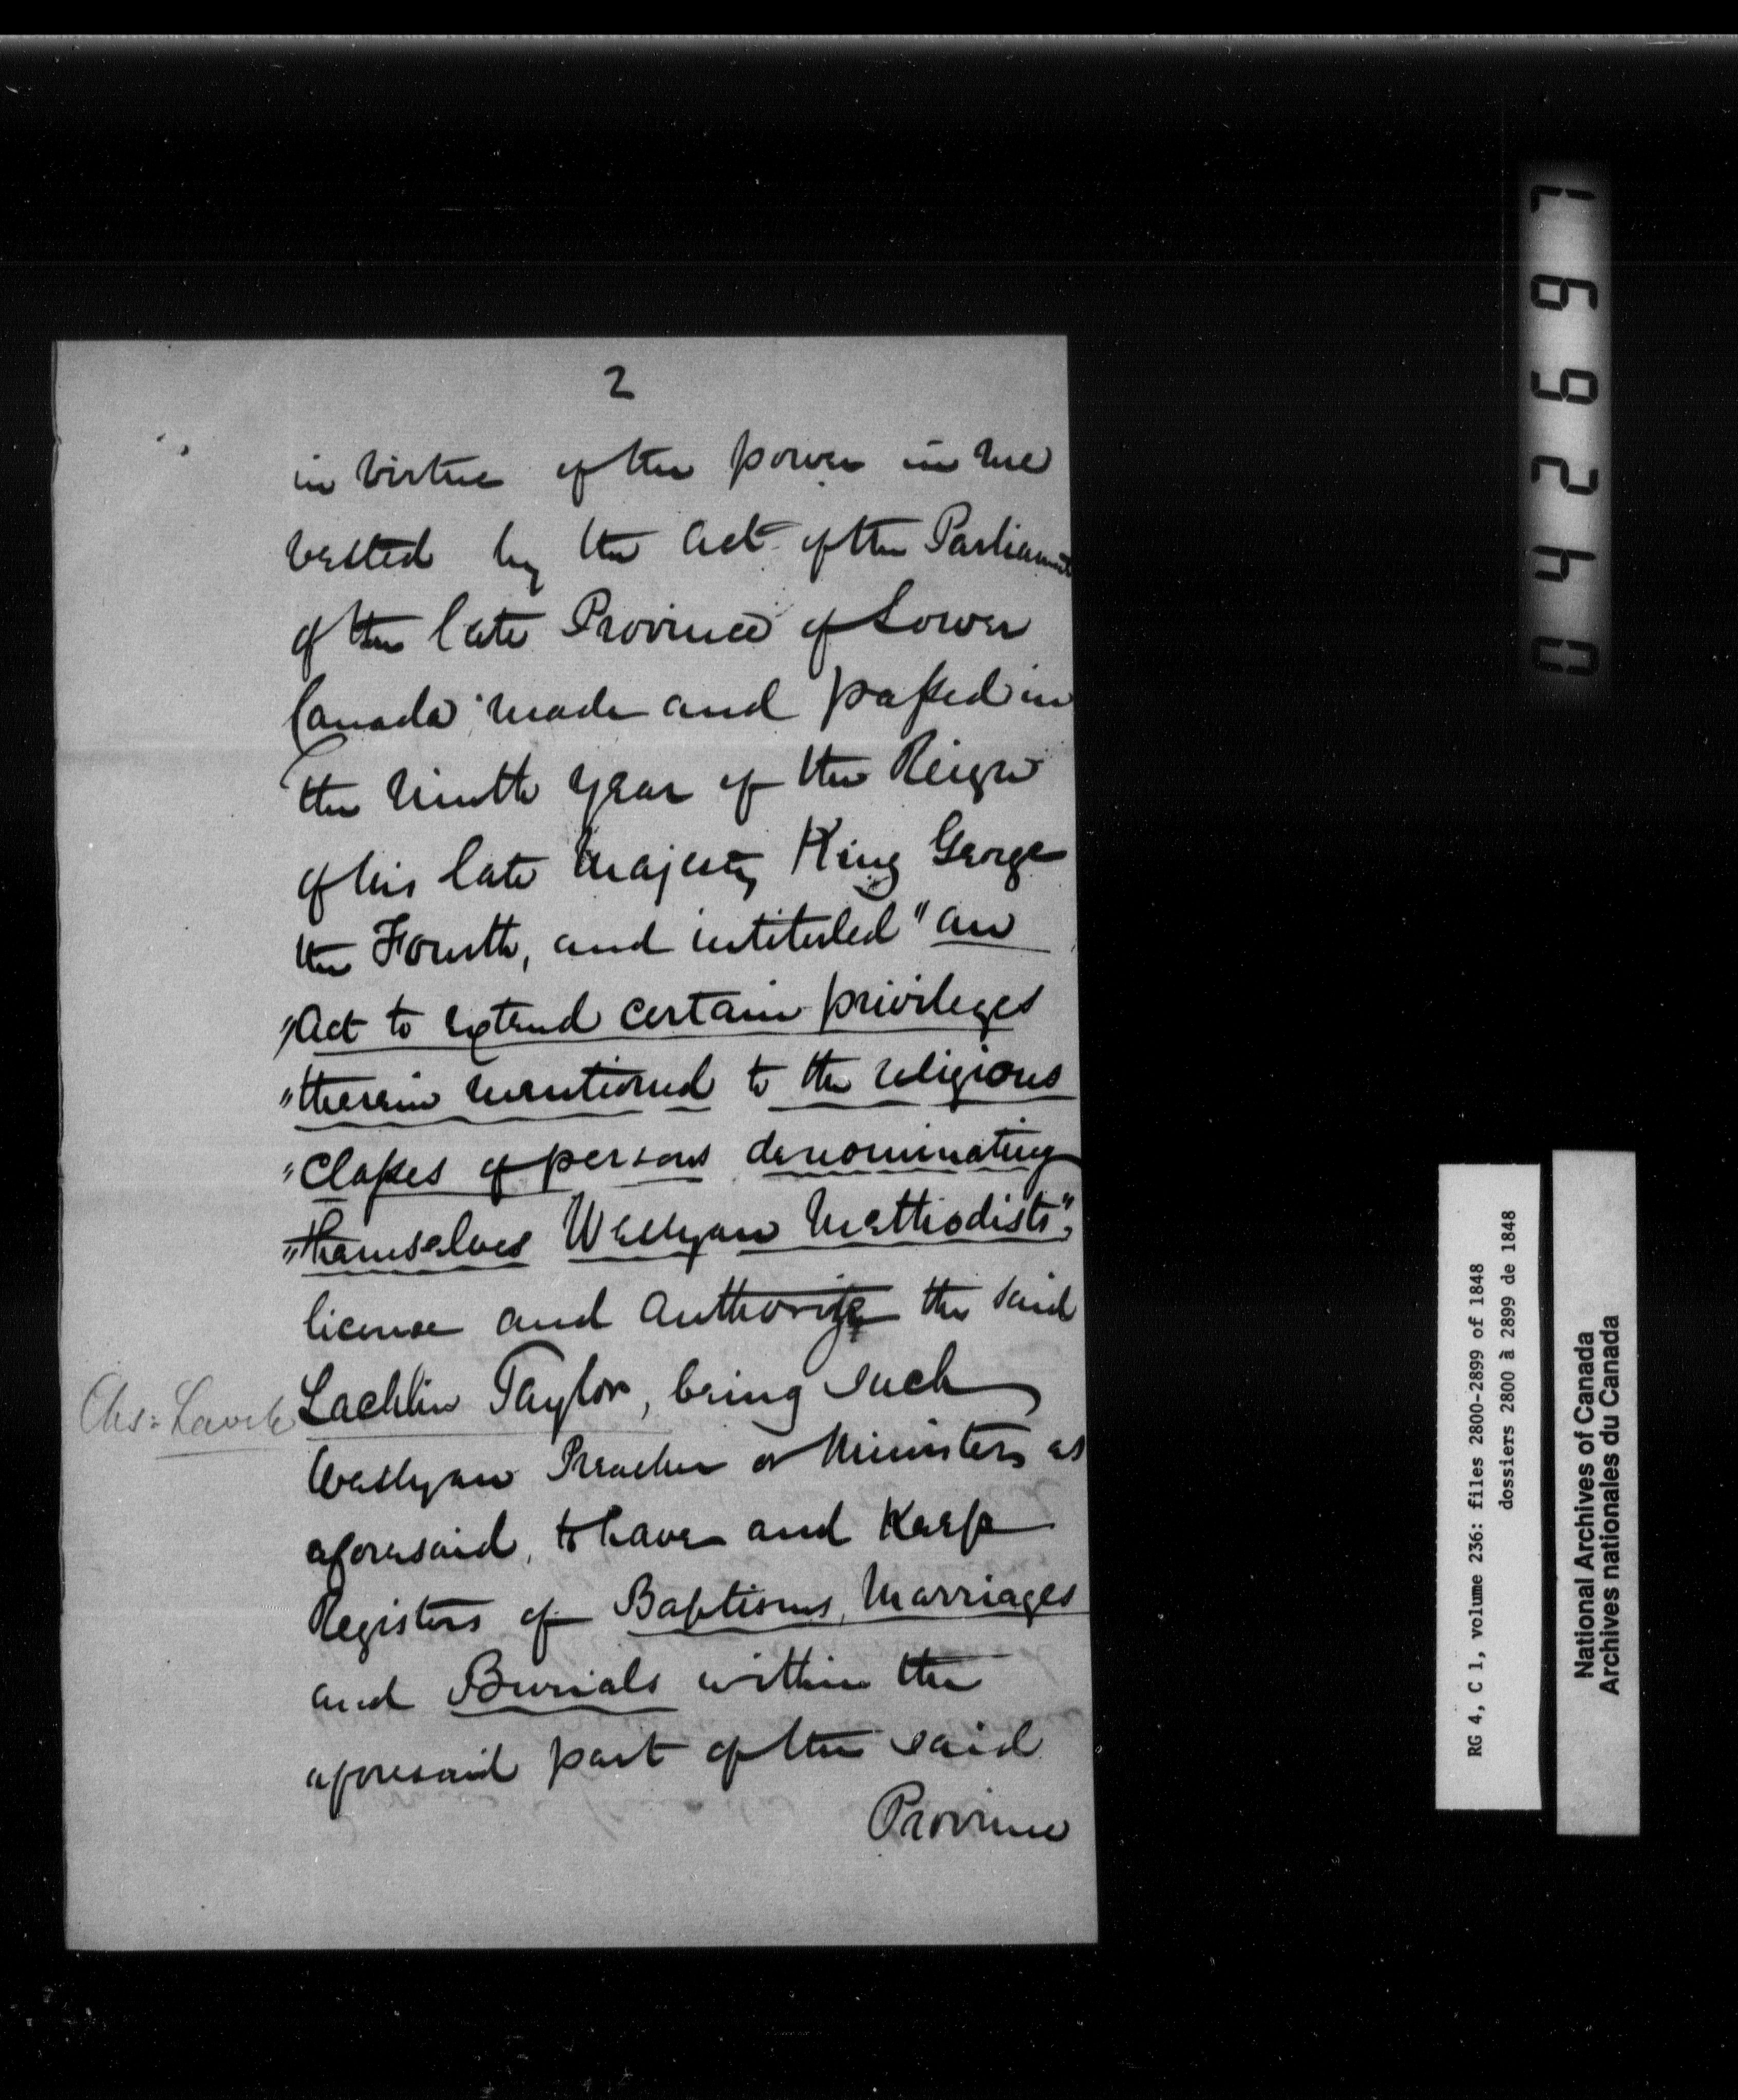 2
in virtue of the power in me
vested by the Act of the Parliament
of the late Province of Lower
Canada made and passed in
the ninth year of the Reign
of his late Majesty King George
the Fourth, and intituled "An
"Act to extend certain privileges
"therein mentioned to the religious
"Classes of persons denominating
"themselves Weslyan Methodists";
license and Authorize the said
Chs:
Lachlin Taylor, being such
Weslyan Preacher or Minister, as
aforesaid, to have and Keep
Registers of Baptisms, Marriages
and Burials within the
aforesaid part of the said
Province
042697
RG 4, C 1, volume 236: files 2800-2899 of 1848
dossiers 2800 à 2899 de 1848
National Archives of Canada
Archives nationales du Canada